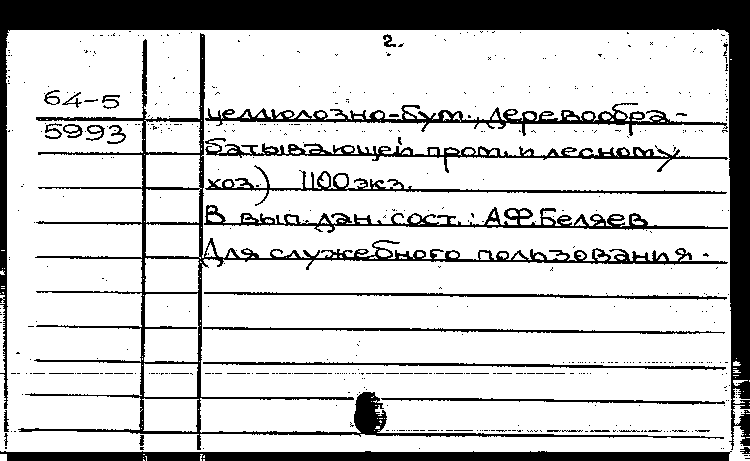 2.
64-5
5993
целлюлозно-бум., деревообра-
батывающей пром. и лесному
хоз.) 1100 экз.
В вып. дан. сост.: А.Ф. Беляев
Для служебного пользования.